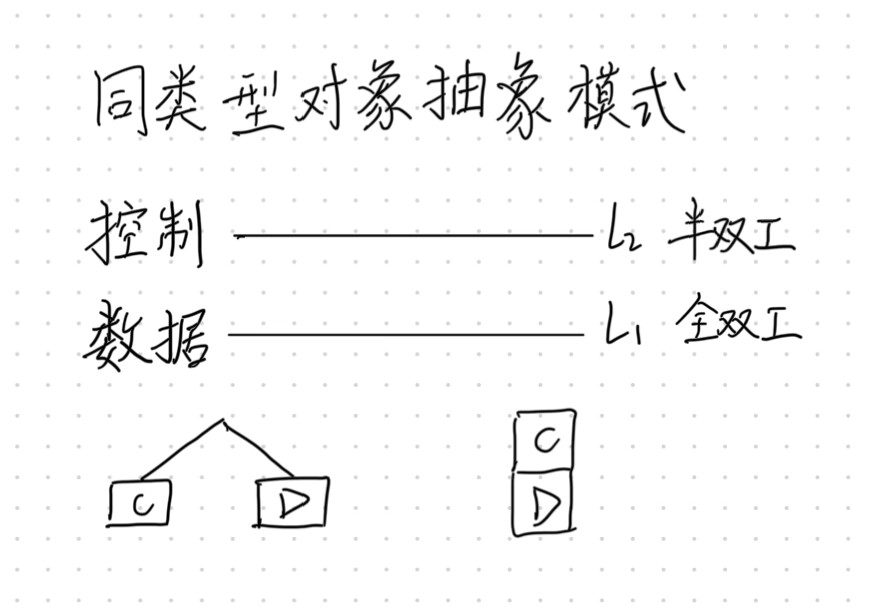 同类型对象抽象模式
控制 L2 半双工
数据 L1 全双工
C D
C
D